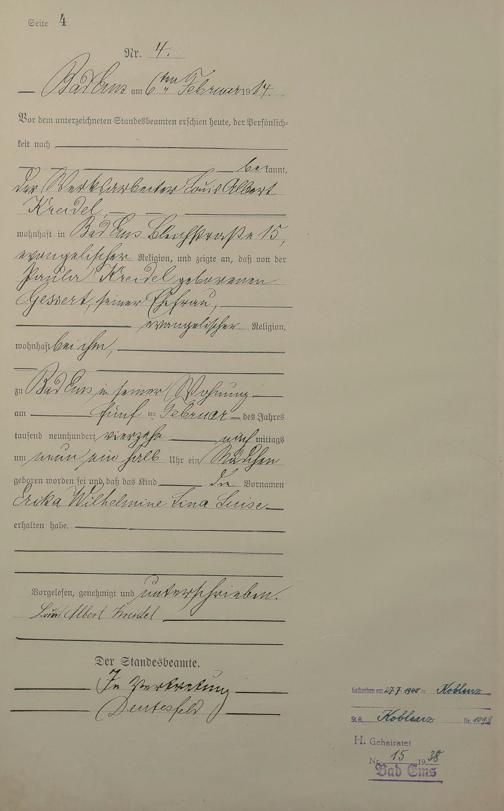 Seite 4
Nr. 4.
Bad Ems am 6ten Februar 1914.
Vor dem unterzeichneten Standesbeamten erschien heute, der Persönlich-
keit nach
bekannt,
der Werksarbeiter Louis Albert
Kreidel,
wohnhaft in Bad Ems Bleichstraße 15,
evangelischer Religion, und zeigte an, daß von der
Paula Kreidel geborenen
Gessert, seiner Ehefrau,
evangelischer Religion,
wohnhaft bei ihm,
zu Bad Ems in seiner Wohnung
am fünften Februar des Jahres
tausend neunhundert vierzehn nachmittags
um neun ein halb Uhr ein Mädchen
geboren worden sei und daß das Kind die Vornamen
Erika Wilhelmine Lina Luise
erhalten habe.
Vorgelesen, genehmigt und unterschrieben.
Louis Albert Kreidel
Der Standesbeamte.
In Vertretung
Gestorben am 27.7. in Koblenz
St. A. Koblenz Nr.
H. Geheiratet
Nr. 15 1938
Bad Ems